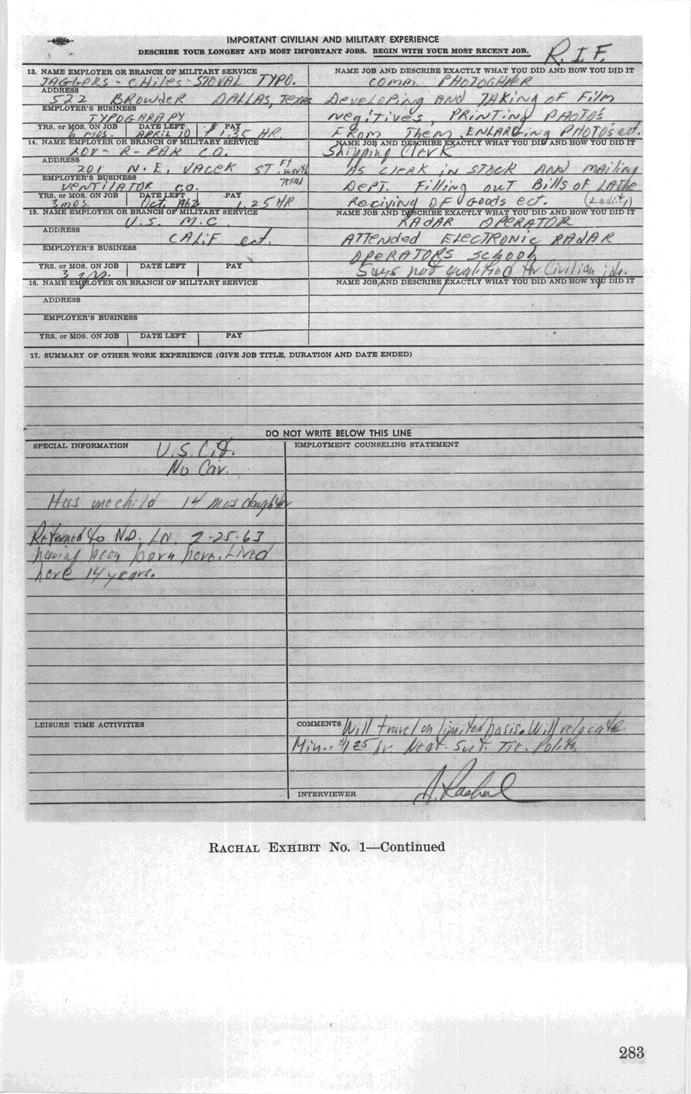 IMPORTANT CIVILIAN AND MILITARY EXPERIENCE
DESCRIBE YOUR LONGEST AND MOST IMPORTANT JOBS. BEGIN WITH YOUR MOST RECENT JOB.
R.I.F.
13. NAME EMPLOYER OR BRANCH OF MILITARY SERVICE
JAGGERS - CHILES - STOVAL TYPO.
ADDRESS
522 BROWDER DALLAS, TEXAS
EMPLOYER'S BUSINESS
TYPOGARAPY
YRS. or MOS. ON JOB DATE LEFT PAY
6 mos. APRIL 10 $1.35 HR.
NAME JOB AND DESCRIBE EXACTLY WHAT YOU DID AND HOW YOU DID IT
COMM. PHOTOGHER
Developing AND TAKING of Film
negitives, PRINTING PHOTOS
From Them, ENLARGing PHOTOS ect.
14. NAME EMPLOYER OR BRANCH OF MILITARY SERVICE
LOV-R-PAK CO.
ADDRESS
201 N.E. VACEK ST Ft worth Texas
EMPLOYER'S BUSINESS
VENTILATOR CO.
YRS. or MOS. ON JOB DATE LEFT PAY
3 mos Oct. 1962 1.25 HR
NAME JOB AND DESCRIBE EXACTLY WHAT YOU DID AND HOW YOU DID IT
Shipping Clerk
As clerk in stock AND mailing
Dept. Filling out Bills of LADE
Reciving OF Goods ect.
15. NAME EMPLOYER OR BRANCH OF MILITARY SERVICE
U.S. M.C
ADDRESS
CALIF ect.
EMPLOYER'S BUSINESS
YRS. or MOS. ON JOB DATE LEFT PAY
3 yrs.
NAME JOB AND DESCRIBE EXACTLY WHAT YOU DID AND HOW YOU DID IT
RADAR OPERATOR
ATTENDED ELECTRONIC RADAR
OPERATORS SCHOOL
Says not qualified for Civilian job.
16. NAME EMPLOYER OR BRANCH OF MILITARY SERVICE
ADDRESS
EMPLOYER'S BUSINESS
YRS. or MOS. ON JOB DATE LEFT PAY
NAME JOB AND DESCRIBE EXACTLY WHAT YOU DID AND HOW YOU DID IT
17. SUMMARY OF OTHER WORK EXPERIENCE (GIVE JOB TITLE, DURATION AND DATE ENDED)
DO NOT WRITE BELOW THIS LINE
SPECIAL INFORMATION
U.S. Cit.
No Car.
Has one child 14 mos daughter
Returned to N.O. LA. 7-25-63
having been born here. Lived
here 14 years.
LEISURE TIME ACTIVITIES
EMPLOYMENT COUNSELING STATEMENT
COMMENTS Will travel on limited basis. Will relocate
Min. $1.25 hr Neat. Suit. Tie. Polite
INTERVIEWER
RACHAL EXHIBIT No. 1—Continued
283